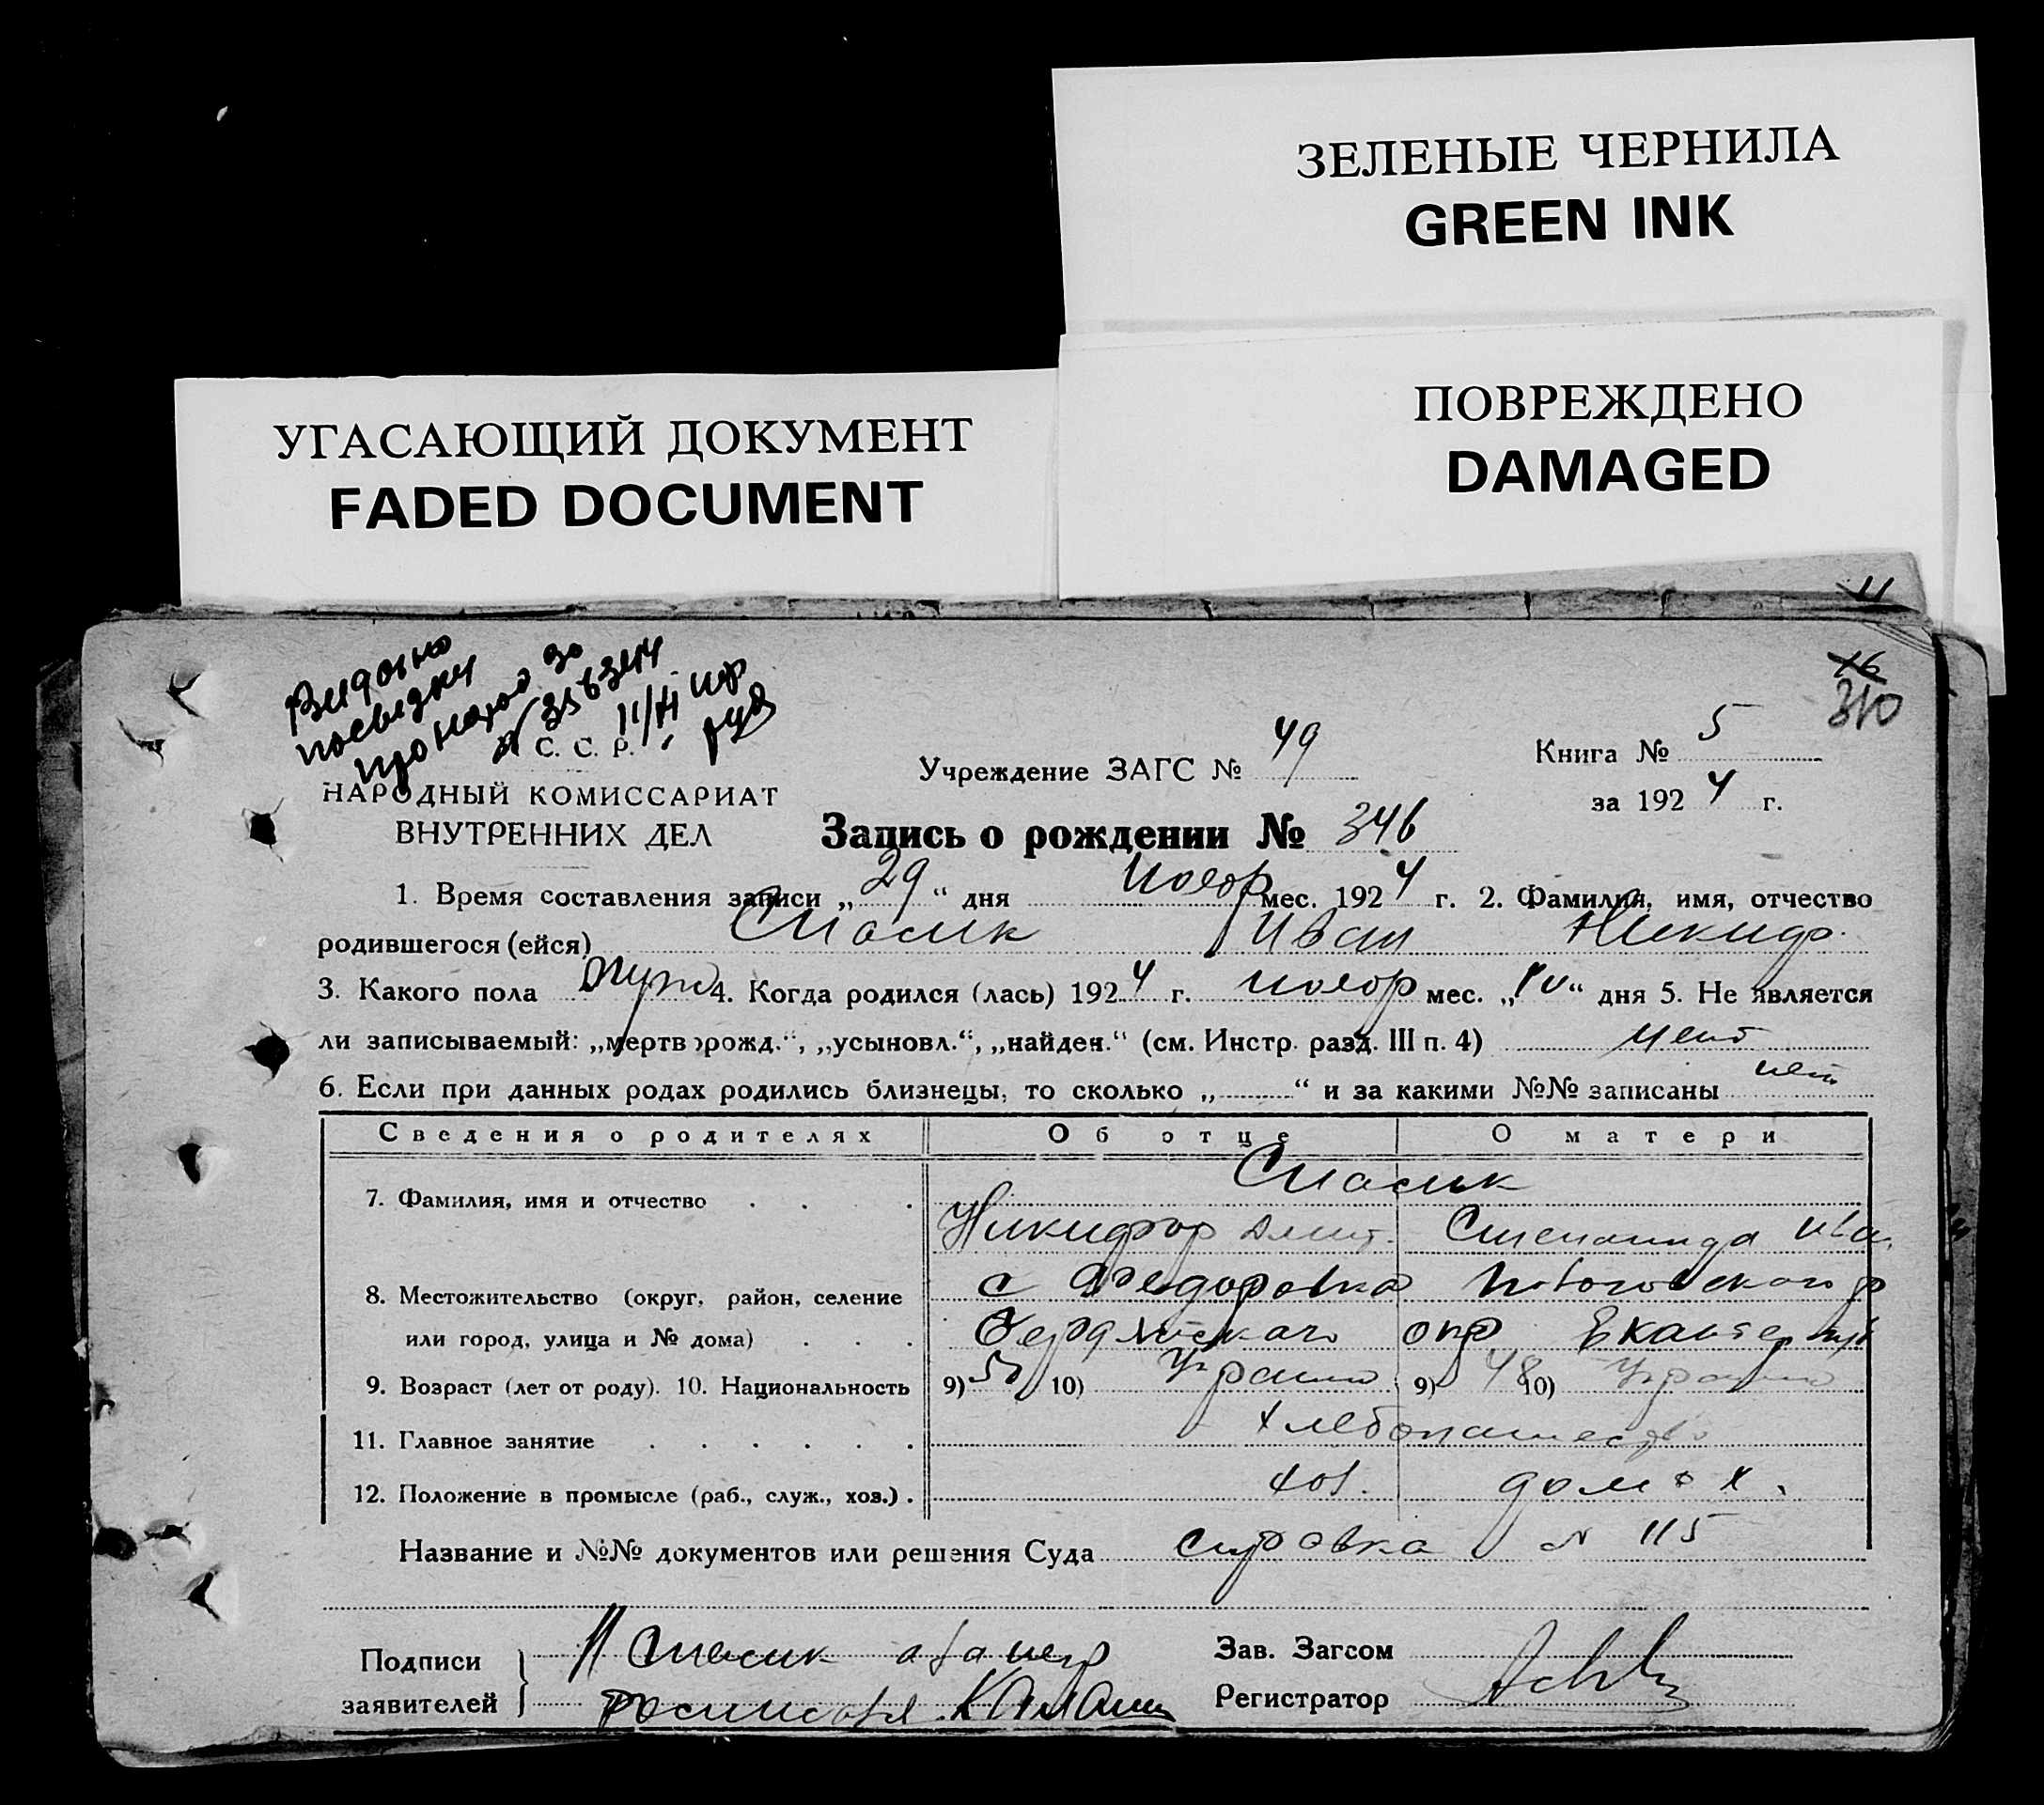 ЗЕЛЕНЫЕ ЧЕРНИЛА
GREEN INK
ПОВРЕЖДЕНО
DAMAGED
УГАСАЮЩИЙ ДОКУМЕНТ
FADED DOCUMENT
11
16
310
Видано
про
С. С. Р.
НАРОДНЫЙ КОМИССАРИАТ
ВНУТРЕННИХ ДЕЛ
Учреждение ЗАГС № 49
Книга № 5
за 1924 г.
Запись о рождении № 346
1. Время составления записи „29“ дня мес. 1924 г. 2. Фамилия, имя, отчество
родившегося (ейся) Иван Никифор.
3. Какого пола муж 4. Когда родился (лась) 1924 г. мес. „10“ дня 5. Не является
ли записываемый: „мертворожд.“, „усыновл.“, „найден.“ (см. Инстр. разд. III п. 4) нет
6. Если при данных родах родились близнецы, то сколько „ “ и за какими №№ записаны нет
Сведения о родителях Об отце О матери
7. Фамилия, имя и отчество
Никифор Дмит. Степанида Ива.
8. Местожительство (округ, район, селение с Федоровка
или город, улица и № дома) Бердянского окр Екатер
9. Возраст (лет от роду). 10. Национальность 9) 50 10) Украин 9) 48 10) Украин
11. Главное занятие хлебопашество
12. Положение в промысле (раб., служ., хоз.) хоз. дом х.
Название и №№ документов или решения Суда справка № 115
Подписи заявителей
Зав. Загсом
Регистратор